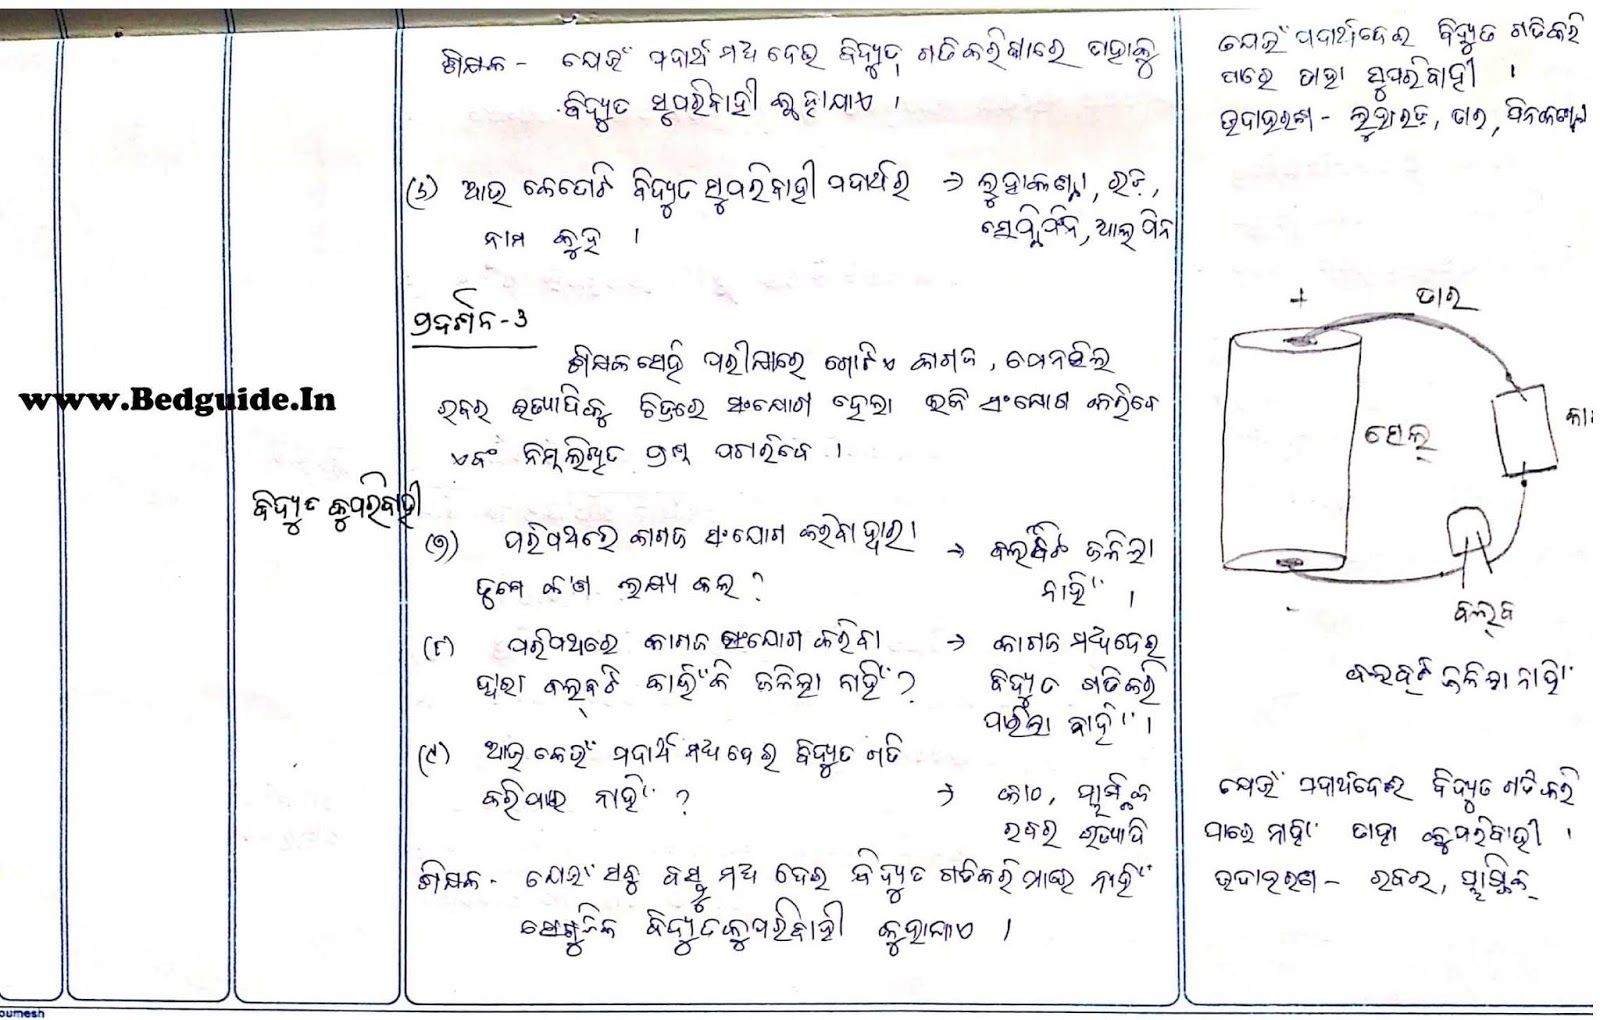 ଶିକ୍ଷକ - ଯେଉଁ ପଦାର୍ଥ ମଧ୍ୟ ଦେଇ ବିଦ୍ୟୁତ୍ ଗତିକରିପାରେ ତାହାକୁ
ବିଦ୍ୟୁତ ସୁପରିବାହୀ କୁହାଯାଏ ।
(୬) ଆଉ କେତୋଟି ବିଦ୍ୟୁତ ସୁପରିବାହୀ ପଦାର୍ଥର → ଲୁହାକଣ୍ଟା, ରଡ଼,
ନାମ କୁହ । ସେପ୍ଟିପିନ, ଆଲପିନ
ପ୍ରଦର୍ଶନ - ୩
ଶିକ୍ଷକ ସେହି ପରୀକ୍ଷାରେ ଗୋଟିଏ କାଗଜ, ପେନସିଲ
ରବର ଇତ୍ୟାଦିକୁ ଚିତ୍ରରେ ସଂଯୋଗ ହେଲା ଭଳି ସଂଯୋଗ କରିବେ
ଏବଂ ନିମ୍ନଲିଖିତ ପ୍ରଶ୍ନ ପଚାରିବେ ।
www.Bedguide.In
ବିଦ୍ୟୁତ କୁପରିବାହୀ
(୭) ପରିପଥରେ କାଗଜ ସଂଯୋଗ କରିବା ଦ୍ୱାରା → ବଲବଟି ଜଳିଲା
ତୁମେ କ'ଣ ଲକ୍ଷ୍ୟ କଲ ? ନାହିଁ ।
(୮) ପରିପଥରେ କାଗଜ ସଂଯୋଗ କରିବା → କାଗଜ ମଧ୍ୟଦେଇ
ଦ୍ୱାରା ବଲବ୍‌ଟି କାହିଁକି ଜଳିଲା ନାହିଁ ? ବିଦ୍ୟୁତ ଗତିକରି
ପାରିଲା ନାହିଁ ।
(୯) ଆଉ କେଉଁ ପଦାର୍ଥ ମଧ୍ୟ ଦେଇ ବିଦ୍ୟୁତ ଗତି
କରିପାରେ ନାହିଁ ? → କାଠ, ପ୍ଲାଷ୍ଟିକ
ରବର ଇତ୍ୟାଦି
ଶିକ୍ଷକ - ଯେଉଁ ସବୁ ବସ୍ତୁ ମଧ୍ୟ ଦେଇ ବିଦ୍ୟୁତ ଗତିକରି ପାରେ ନାହିଁ
ସେଗୁଡିକ ବିଦ୍ୟୁତ କୁପରିବାହୀ କୁହାଯାଏ ।
ଯେଉଁ ପଦାର୍ଥଦେଇ ବିଦ୍ୟୁତ ଗତିକରି
ପାରେ ତାହା ସୁପରିବାହୀ ।
ଉଦାହରଣ - ଲୁହାରଡ଼, ତାର, ପିନକଣ୍ଟା
+ ତାର
ସେଲ୍
-
ବଲ୍‌ବ
ବଲବ୍‌ଟି ଜଳିଲା ନାହିଁ
ଯେଉଁ ପଦାର୍ଥଦେଇ ବିଦ୍ୟୁତ ଗତିକରି
ପାରେ ନାହିଁ ତାହା କୁପରିବାହୀ ।
ଉଦାହରଣ - ରବର, ପ୍ଲାଷ୍ଟିକ୍
oumesh